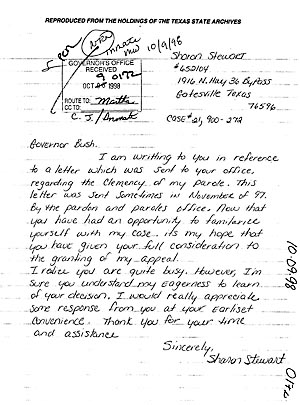 REPRODUCED FROM THE HOLDINGS OF THE TEXAS STATE ARCHIVES
10/9/98
GOVERNOR'S OFFICE
RECEIVED
OCT 1998
ROUTE TO:
CC TO:
C. J.
Sharon Stewart
#652104
1916 N. Hwy 36 ByPass
Gatesville Texas
76596
CASE # 21,900-272
Governor Bush.
I am writting to you in reference
to a letter which was sent to your office,
regarding the Clemency of my parole. This
letter was sent sometimes in November of 97.
By the pardon and paroles office. Now that
you have had an opportunity to familarize
yourself with my case. its my hope that
you have given your full consideration to
the granting of my appeal.
I relize you are quite busy. However, I'm
sure you understand my Eagerness to learn
of your decision. I would really appreciate
some response from you at your Earliset
Convenience. Thank you for your time
and assistance
Sincerely,
Sharon Stewart
10-09-98